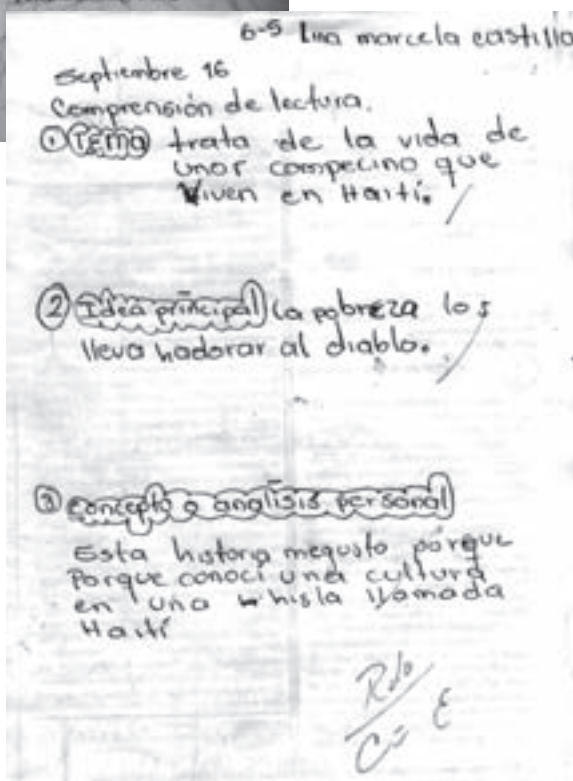 6-5 Lina marcela castillo
septiembre 16
Comprensión de lectura.
① Tema trata de la vida de
unor compecino que
Viven en Haití.
② Idea principal la pobreza los
lleva hadorar al diablo.
③ concepto o analisis personal
Esta historia megusto porque
Porque conocí una cultura
en una hisla llamada
Haití